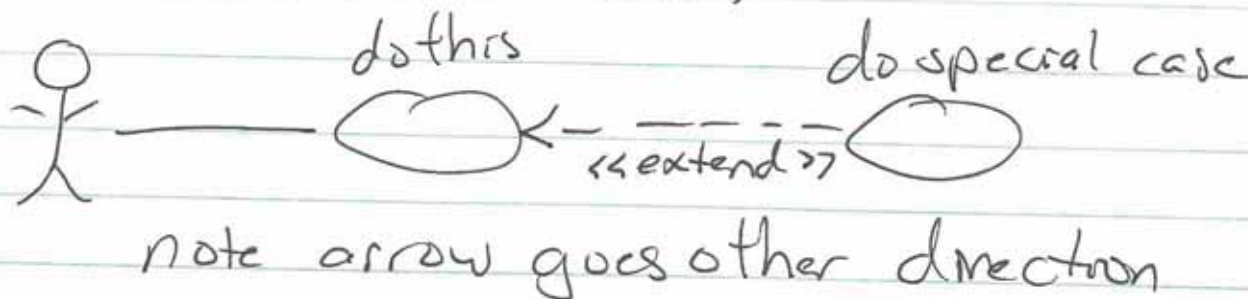 do this
do special case
<<extend>>
note arrow goes other direction